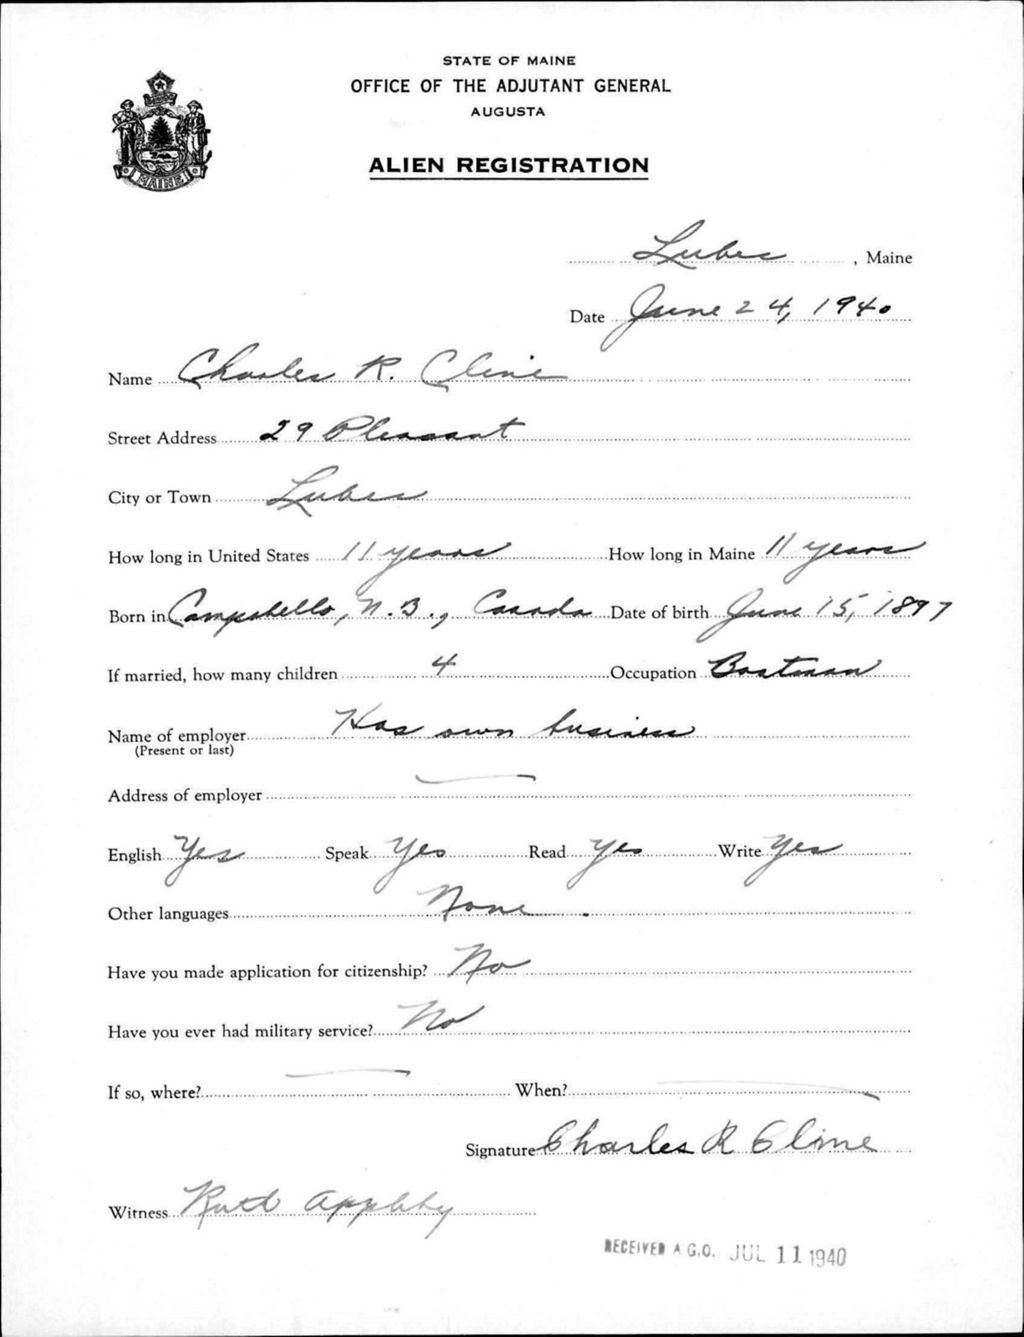 STATE OF MAINE
OFFICE OF THE ADJUTANT GENERAL
AUGUSTA
MAINE
ALIEN REGISTRATION
Lubec, Maine
Date June 24, 1940
Name Charles R. Cline
Street Address 29 Pleasant
City or Town Lubec
How long in United States 11 years How long in Maine 11 years
Born in Campobello, N.B., Canada Date of birth June 15, 1897
If married, how many children 4 Occupation Boatman
Name of employer Has own business
(Present or last)
Address of employer
English Yes Speak Yes Read Yes Write Yes
Other languages None.
Have you made application for citizenship? No
Have you ever had military service? No
If so, where? When?
Signature Charles R Cline
Witness Ruth Appleby
RECEIVED A.G.O. JUL 11 1940